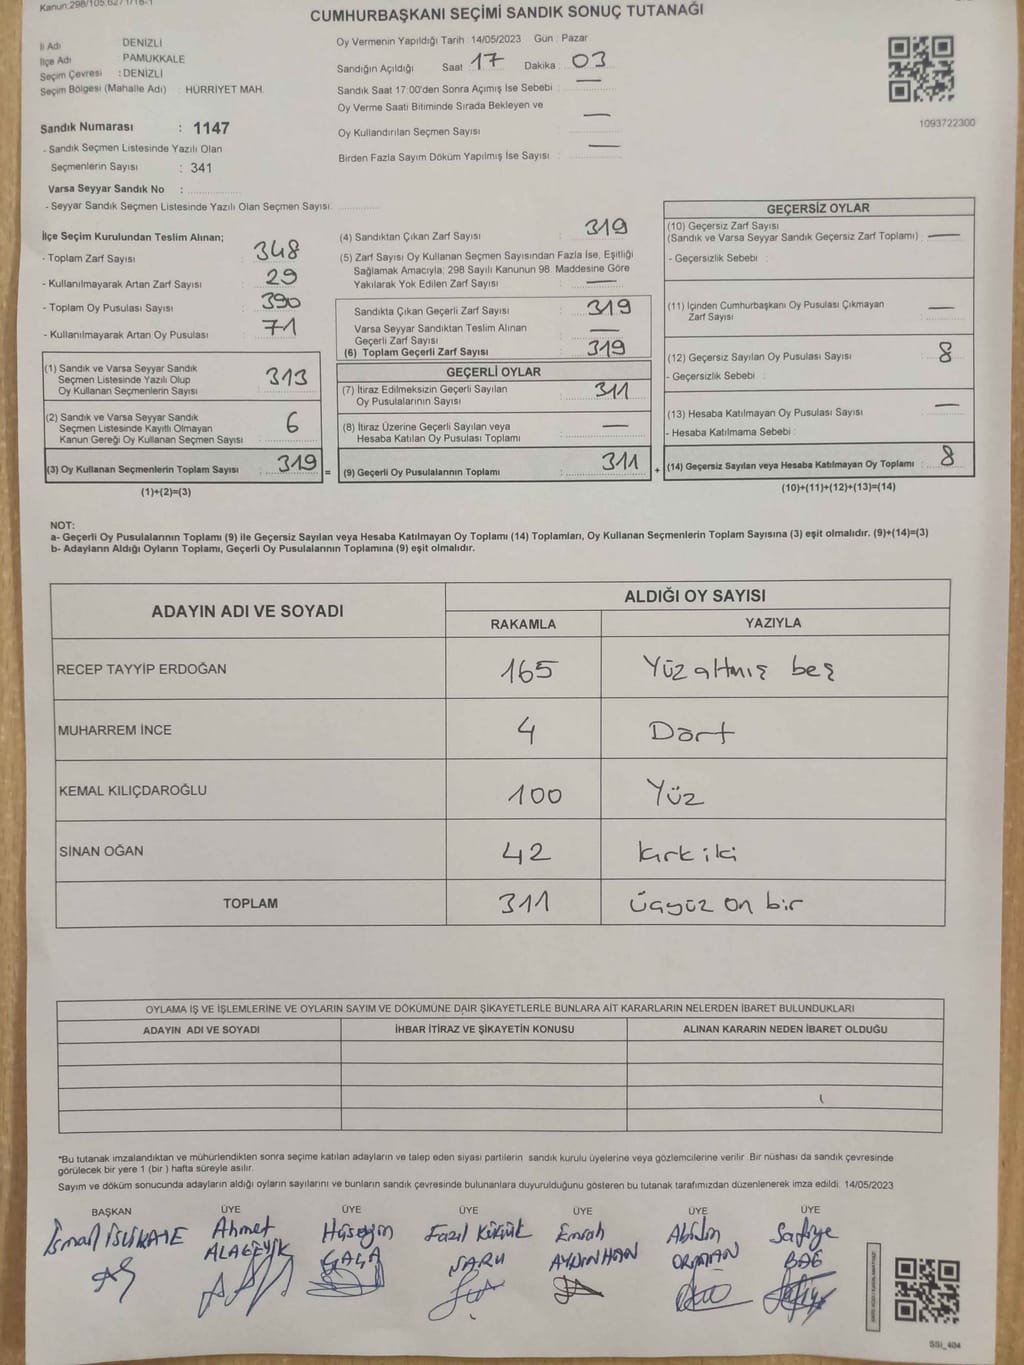 CUMHURBAŞKANI SEÇİMİ SANDIK SONUÇ TUTANAĞI
İl Adı DENİZLİ
İlçe Adı PAMUKKALE
Seçim Çevresi : DENİZLİ
Seçim Bölgesi (Mahalle Adı) : HÜRRİYET MAH.
Sandık Numarası : 1147
- Sandık Seçmen Listesinde Yazılı Olan
Seçmenlerin Sayısı : 341
Varsa Seyyar Sandık No :
- Seyyar Sandık Seçmen Listesinde Yazılı Olan Seçmen Sayısı:
Oy Vermenin Yapıldığı Tarih : 14/05/2023 Gün : Pazar
Sandığın Açıldığı Saat 17 Dakika : 03
Sandık Saat 17:00'den Sonra Açımış İse Sebebi : —
Oy Verme Saati Bitiminde Sırada Bekleyen ve
Oy Kullandırılan Seçmen Sayısı —
Birden Fazla Sayım Döküm Yapılmış İse Sayısı : —
1093722300
İlçe Seçim Kurulundan Teslim Alınan;
- Toplam Zarf Sayısı : 348
- Kullanılmayarak Artan Zarf Sayısı : 29
- Toplam Oy Pusulası Sayısı : 390
- Kullanılmayarak Artan Oy Pusulası : 71
(1) Sandık ve Varsa Seyyar Sandık
Seçmen Listesinde Yazılı Olup
Oy Kullanan Seçmenlerin Sayısı : 313
(2) Sandık ve Varsa Seyyar Sandık
Seçmen Listesinde Kayıtlı Olmayan
Kanun Gereği Oy Kullanan Seçmen Sayısı : 6
(3) Oy Kullanan Seçmenlerin Toplam Sayısı : 319 =
(1)+(2)=(3)
(4) Sandıktan Çıkan Zarf Sayısı : 319
(5) Zarf Sayısı Oy Kullanan Seçmen Sayısından Fazla İse, Eşitliği
Sağlamak Amacıyla; 298 Sayılı Kanunun 98. Maddesine Göre
Yakılarak Yok Edilen Zarf Sayısı : —
Sandıkta Çıkan Geçerli Zarf Sayısı : 319
Varsa Seyyar Sandıktan Teslim Alınan
Geçerli Zarf Sayısı : —
(6) Toplam Geçerli Zarf Sayısı : 319
GEÇERLİ OYLAR
(7) İtiraz Edilmeksizin Geçerli Sayılan
Oy Pusulalarının Sayısı : 311
(8) İtiraz Üzerine Geçerli Sayılan veya
Hesaba Katılan Oy Pusulası Toplamı : —
(9) Geçerli Oy Pusulalarının Toplamı : 311 +
GEÇERSİZ OYLAR
(10) Geçersiz Zarf Sayısı
(Sandık ve Varsa Seyyar Sandık Geçersiz Zarf Toplamı) : —
- Geçersizlik Sebebi :
(11) İçinden Cumhurbaşkanı Oy Pusulası Çıkmayan
Zarf Sayısı : —
(12) Geçersiz Sayılan Oy Pusulası Sayısı : 8
- Geçersizlik Sebebi :
(13) Hesaba Katılmayan Oy Pusulası Sayısı : —
- Hesaba Katılmama Sebebi :
(14) Geçersiz Sayılan veya Hesaba Katılmayan Oy Toplamı : 8
(10)+(11)+(12)+(13)=(14)
NOT:
a- Geçerli Oy Pusulalarının Toplamı (9) ile Geçersiz Sayılan veya Hesaba Katılmayan Oy Toplamı (14) Toplamları, Oy Kullanan Seçmenlerin Toplam Sayısına (3) eşit olmalıdır. (9)+(14)=(3)
b- Adayların Aldığı Oyların Toplamı, Geçerli Oy Pusulalarının Toplamına (9) eşit olmalıdır.
ADAYIN ADI VE SOYADI ALDIĞI OY SAYISI
RAKAMLA YAZIYLA
RECEP TAYYİP ERDOĞAN 165 Yüz altmış beş
MUHARREM İNCE 4 Dört
KEMAL KILIÇDAROĞLU 100 Yüz
SİNAN OĞAN 42 kırk iki
TOPLAM 311 üçyüz on bir
OYLAMA İŞ VE İŞLEMLERİNE VE OYLARIN SAYIM VE DÖKÜMÜNE DAİR ŞİKAYETLERLE BUNLARA AİT KARARLARIN NELERDEN İBARET BULUNDUKLARI
ADAYIN ADI VE SOYADI İHBAR İTİRAZ VE ŞİKAYETİN KONUSU ALINAN KARARIN NEDEN İBARET OLDUĞU
*Bu tutanak imzalandıktan ve mühürlendikten sonra seçime katılan adayların ve talep eden siyası partilerin sandık kurulu üyelerine veya gözlemcilerine verilir. Bir nüshası da sandık çevresinde
görülecek bir yere 1 (bir ) hafta süreyle asılır.
Sayım ve döküm sonucunda adayların aldığı oyların sayılarını ve bunların sandık çevresinde bulunanlara duyurulduğunu gösteren bu tutanak tarafımızdan düzenlenerek imza edildi. 14/05/2023
BAŞKAN ÜYE ÜYE ÜYE ÜYE ÜYE ÜYE
İsmail Ahmet Hüseyin Fazıl Küçük Emrah Abidin Safiye
ALAGEYİK SARU AYDINHAN ORMAN BAĞ
SSI_404